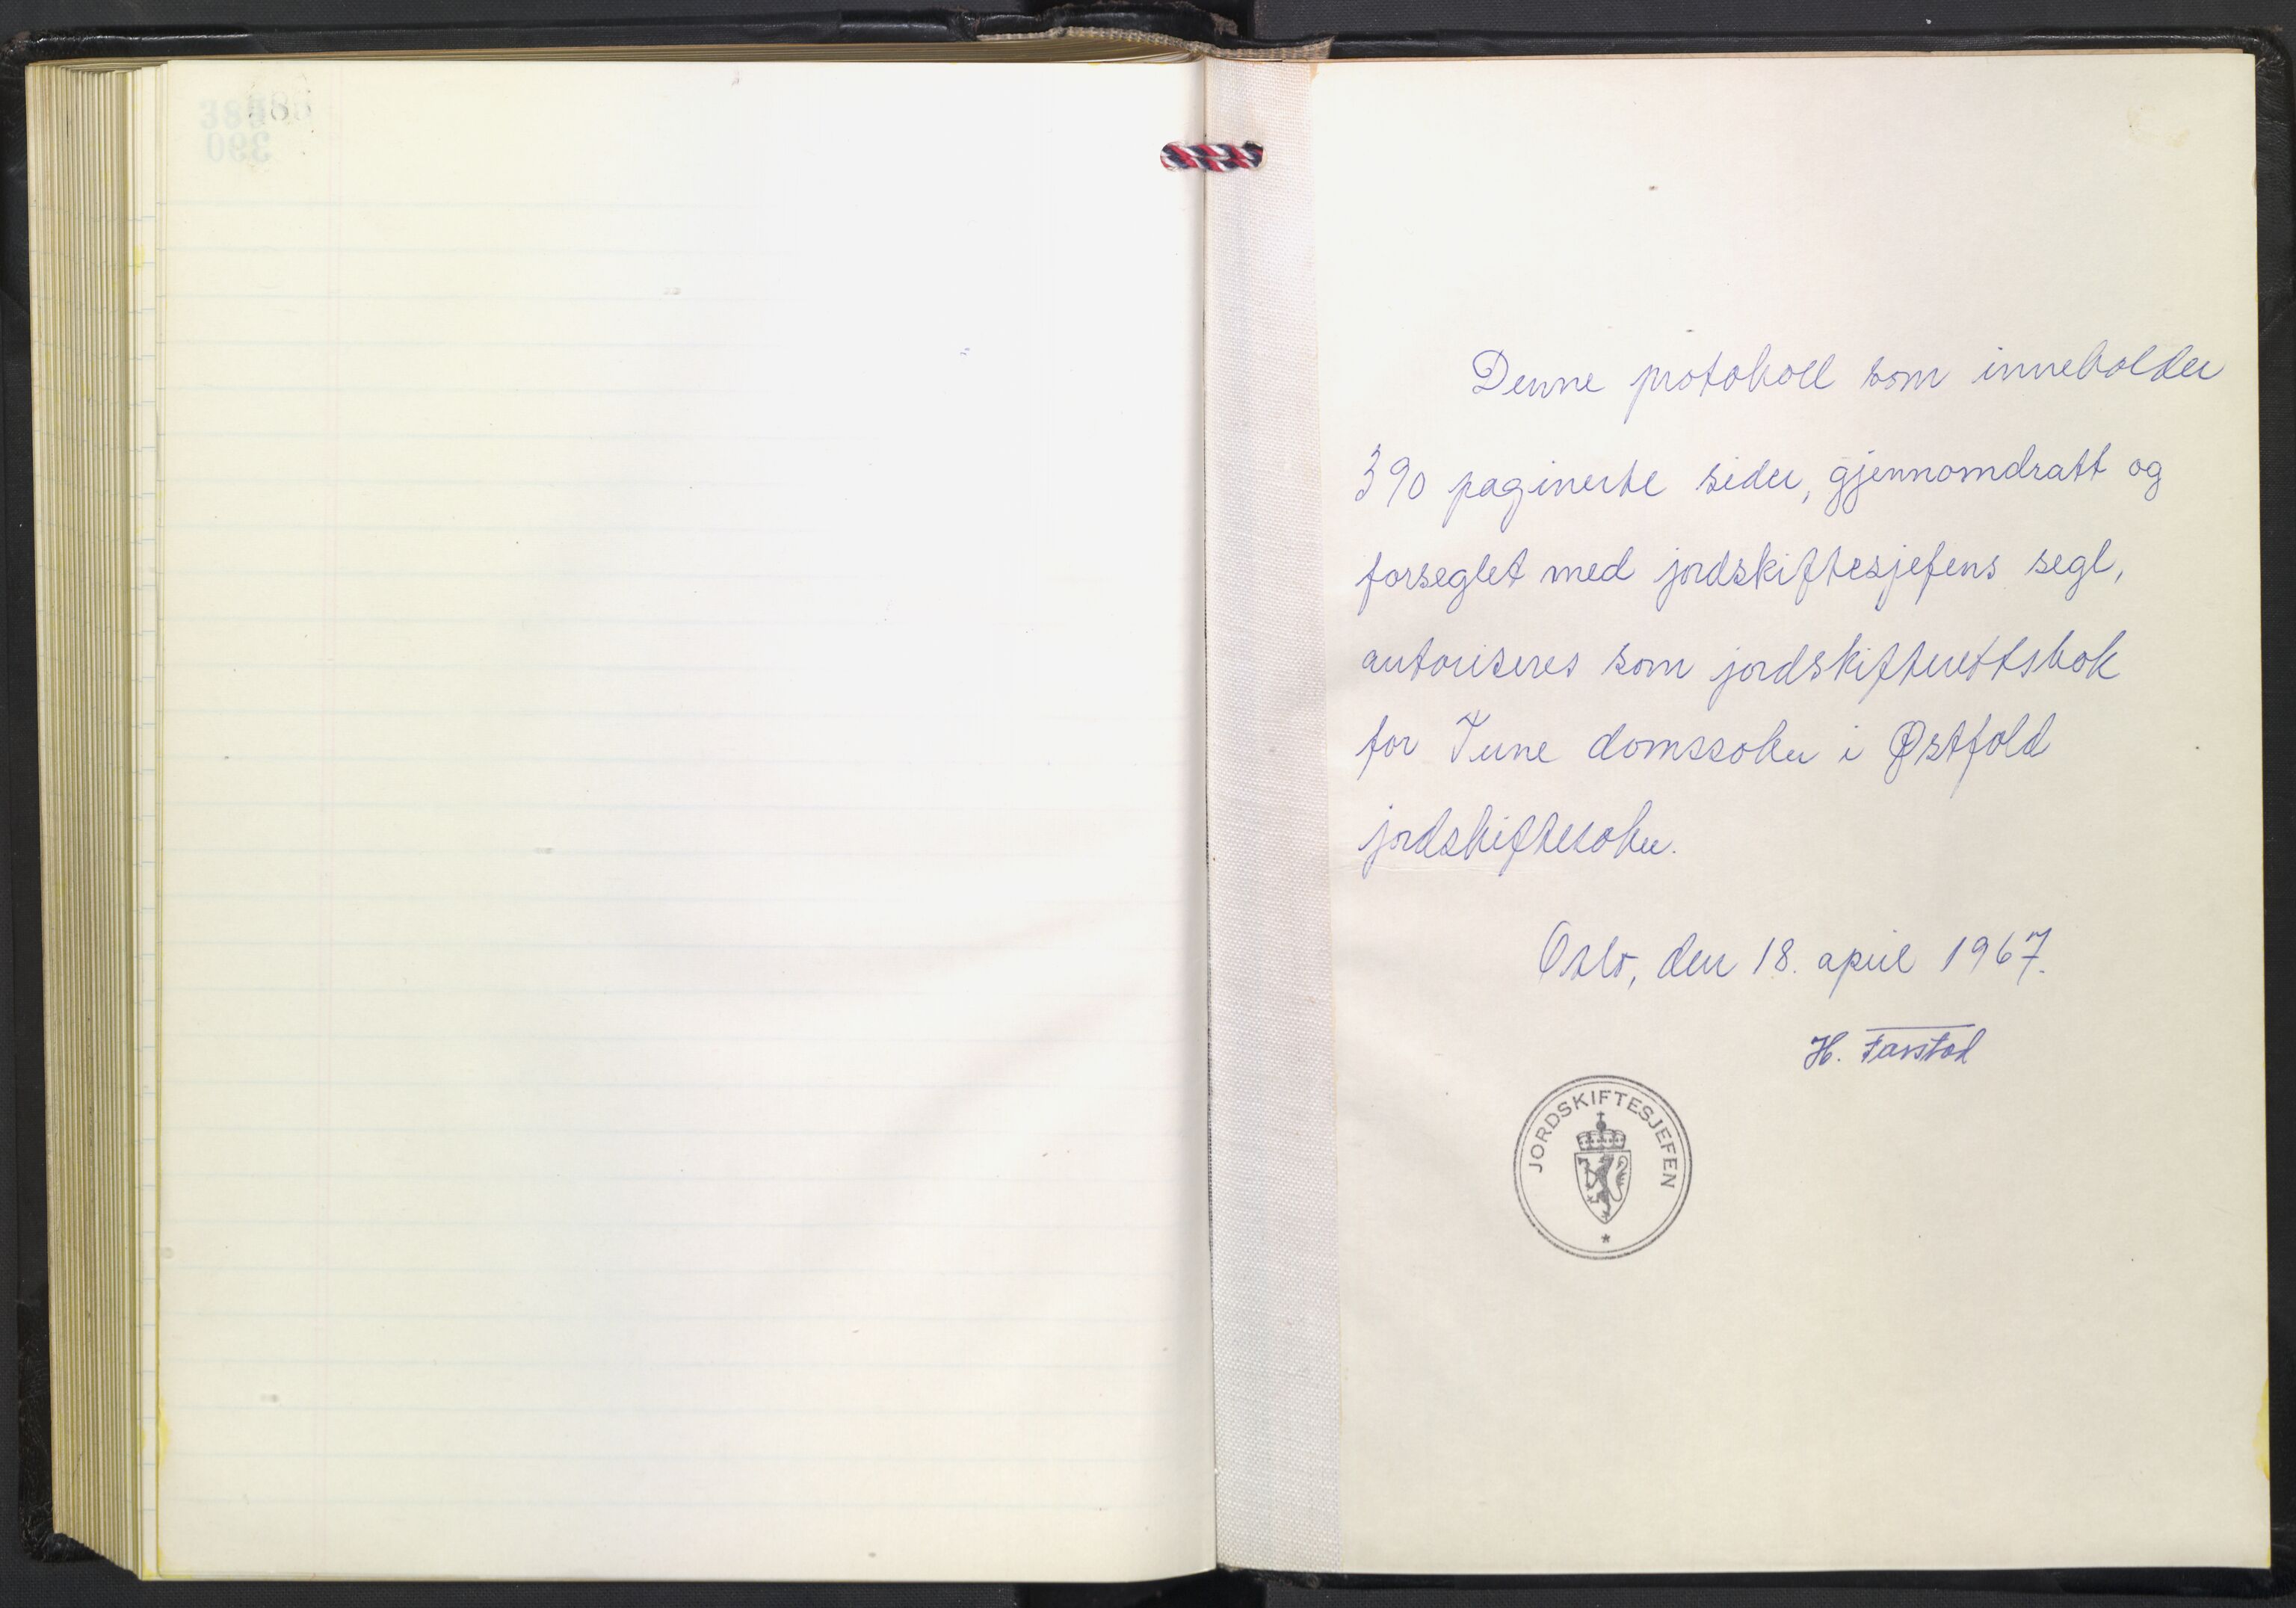 Denne protokoll som inneholder
390 paginerte sider, gjennomdratt og
forseglet med jordskiftesjefens segl,
autoriseres som jordskifterettsbok
for Tune domssoken i Østfold
jordskiftesoken.
Oslo, den 18. april 1967.
H. Farstad
JORDSKIFTESJEFEN